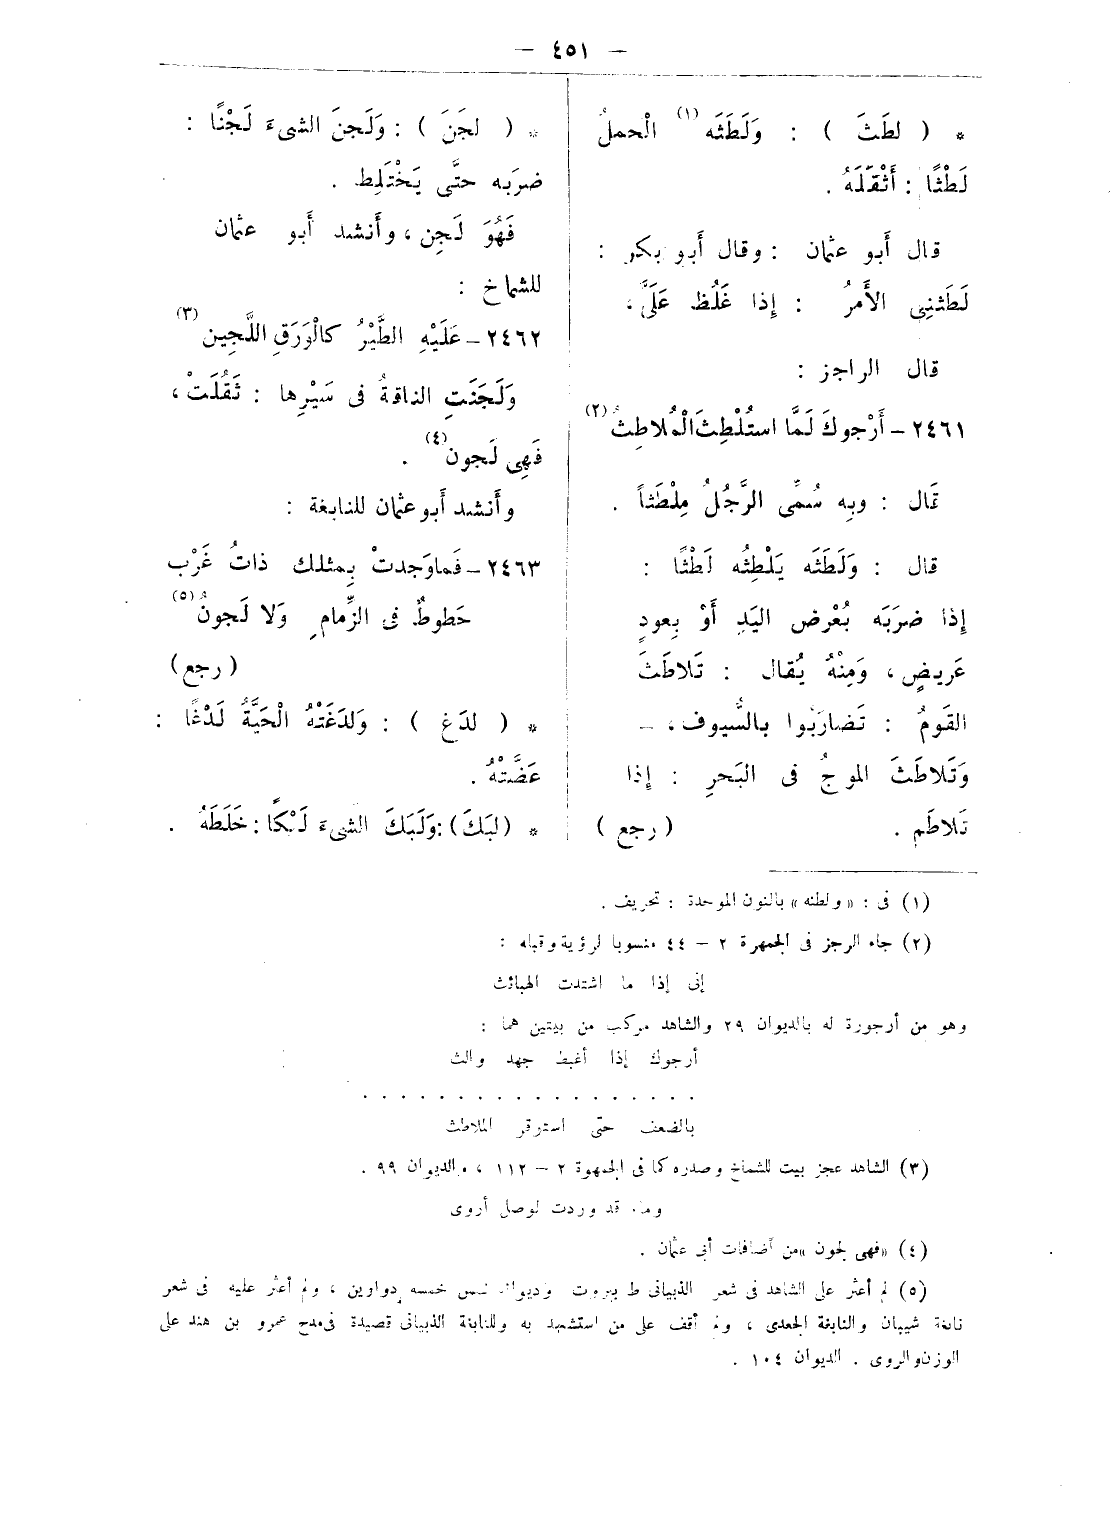 — ٤٥١ —
* ( لطَثَ ) : وَلَطَثَه (١) الْحملُ
لَطْثًا : أَثْقَلَهُ .
قال أبو عثمان : وقال أبو بكر :
لَطَثنِى الأَمرُ : إِذا غَلُظ عَلَىَّ ،
قال الراجز :
٢٤٦١ – أَرْجوكَ لَمَّا استُلْطِثَ الْمُلاطِثُ (٢)
قال : وبه سُمِّى الرَّجُلُ مِلْطَثاً .
قال : وَلَطَثَه يَلْطِثُه لَطْثًا :
إِذا ضرَبَه بُعْرض اليَدِ أَوْ بِعودٍ
عَريضٍ ، وَمِنْهُ يُقال : تَلاطَثَ
القَومُ : تَضارَبُوا بالسُّيوف ، –
وَتَلاطَثَ الموجُ فى البَحرِ : إِذا
تَلاطَم . ( رجع )
* ( لجَنَ ) : وَلَجنَ الشىءَ لَجْنًا :
ضرَبَه حتَّى يَخْتَلِط .
فَهُوَ لَجِن ، وأَنشد أَبو عثمان
للشماخ :
٢٤٦٢ – عَلَيْهِ الطَّيْرُ كالْوَرَقِ اللَّجِين (٣)
وَلَجَنَتِ الناقةُ فى سَيْرِها : ثَقُلَتْ ،
فَهِى لَجون (٤) .
وأَنشد أَبو عثمان للنابغة :
٢٤٦٣ – فَما وَجدتْ بِمثلك ذاتُ غَرْب
خَطوطٌ فى الزِّمامِ وَلا لَجونُ (٥)
( رجع )
* ( لدَغ ) : وَلدَغَتْهُ الْحَيَّةُ لَدْغًا :
عَضَّتْهُ .
* ( لبَكَ ) : وَلَبَكَ الشىءَ لَبْكًا : خَلَطَهُ .
(١) فى : « ولطنه » بالنون الموحدة : تحريف .
(٢) جاء الرجز فى الجمهرة ٢ – ٤٤ منسوبا لرؤبة وقبله :
إنى إذا ما اشتدت الهبائث
وهو من أرجورة له بالديوان ٢٩ والشاهد مركب من بيتين هما :
أرجوك إذا أغبط جهد والث
. . . . . . . . . . . . . . . . . .
بالضعف حتى استوقر الملاطث
(٣) الشاهد عجز بيت للشماخ وصدره كما فى الجمهوة ٢ – ١١٢ ، والديوان ٩٩ .
وماء قد وردت لوصل أروى
(٤) « فهى لجون » من أضافات أبى عثمان .
(٥) لم أعثر على الشاهد فى شعر الذبيانى ط بيروت وديوانه ضمن خمسه دواوين ، ولم أعثر عليه فى شعر
نابغة شيبان والنابغة الجعدى ، ولم أقف على من استشهد به وللنابغة الذبيانى قصيدة فى مدح عمرو بن هند على
الوزن والروى . الديوان ١٠٤ .